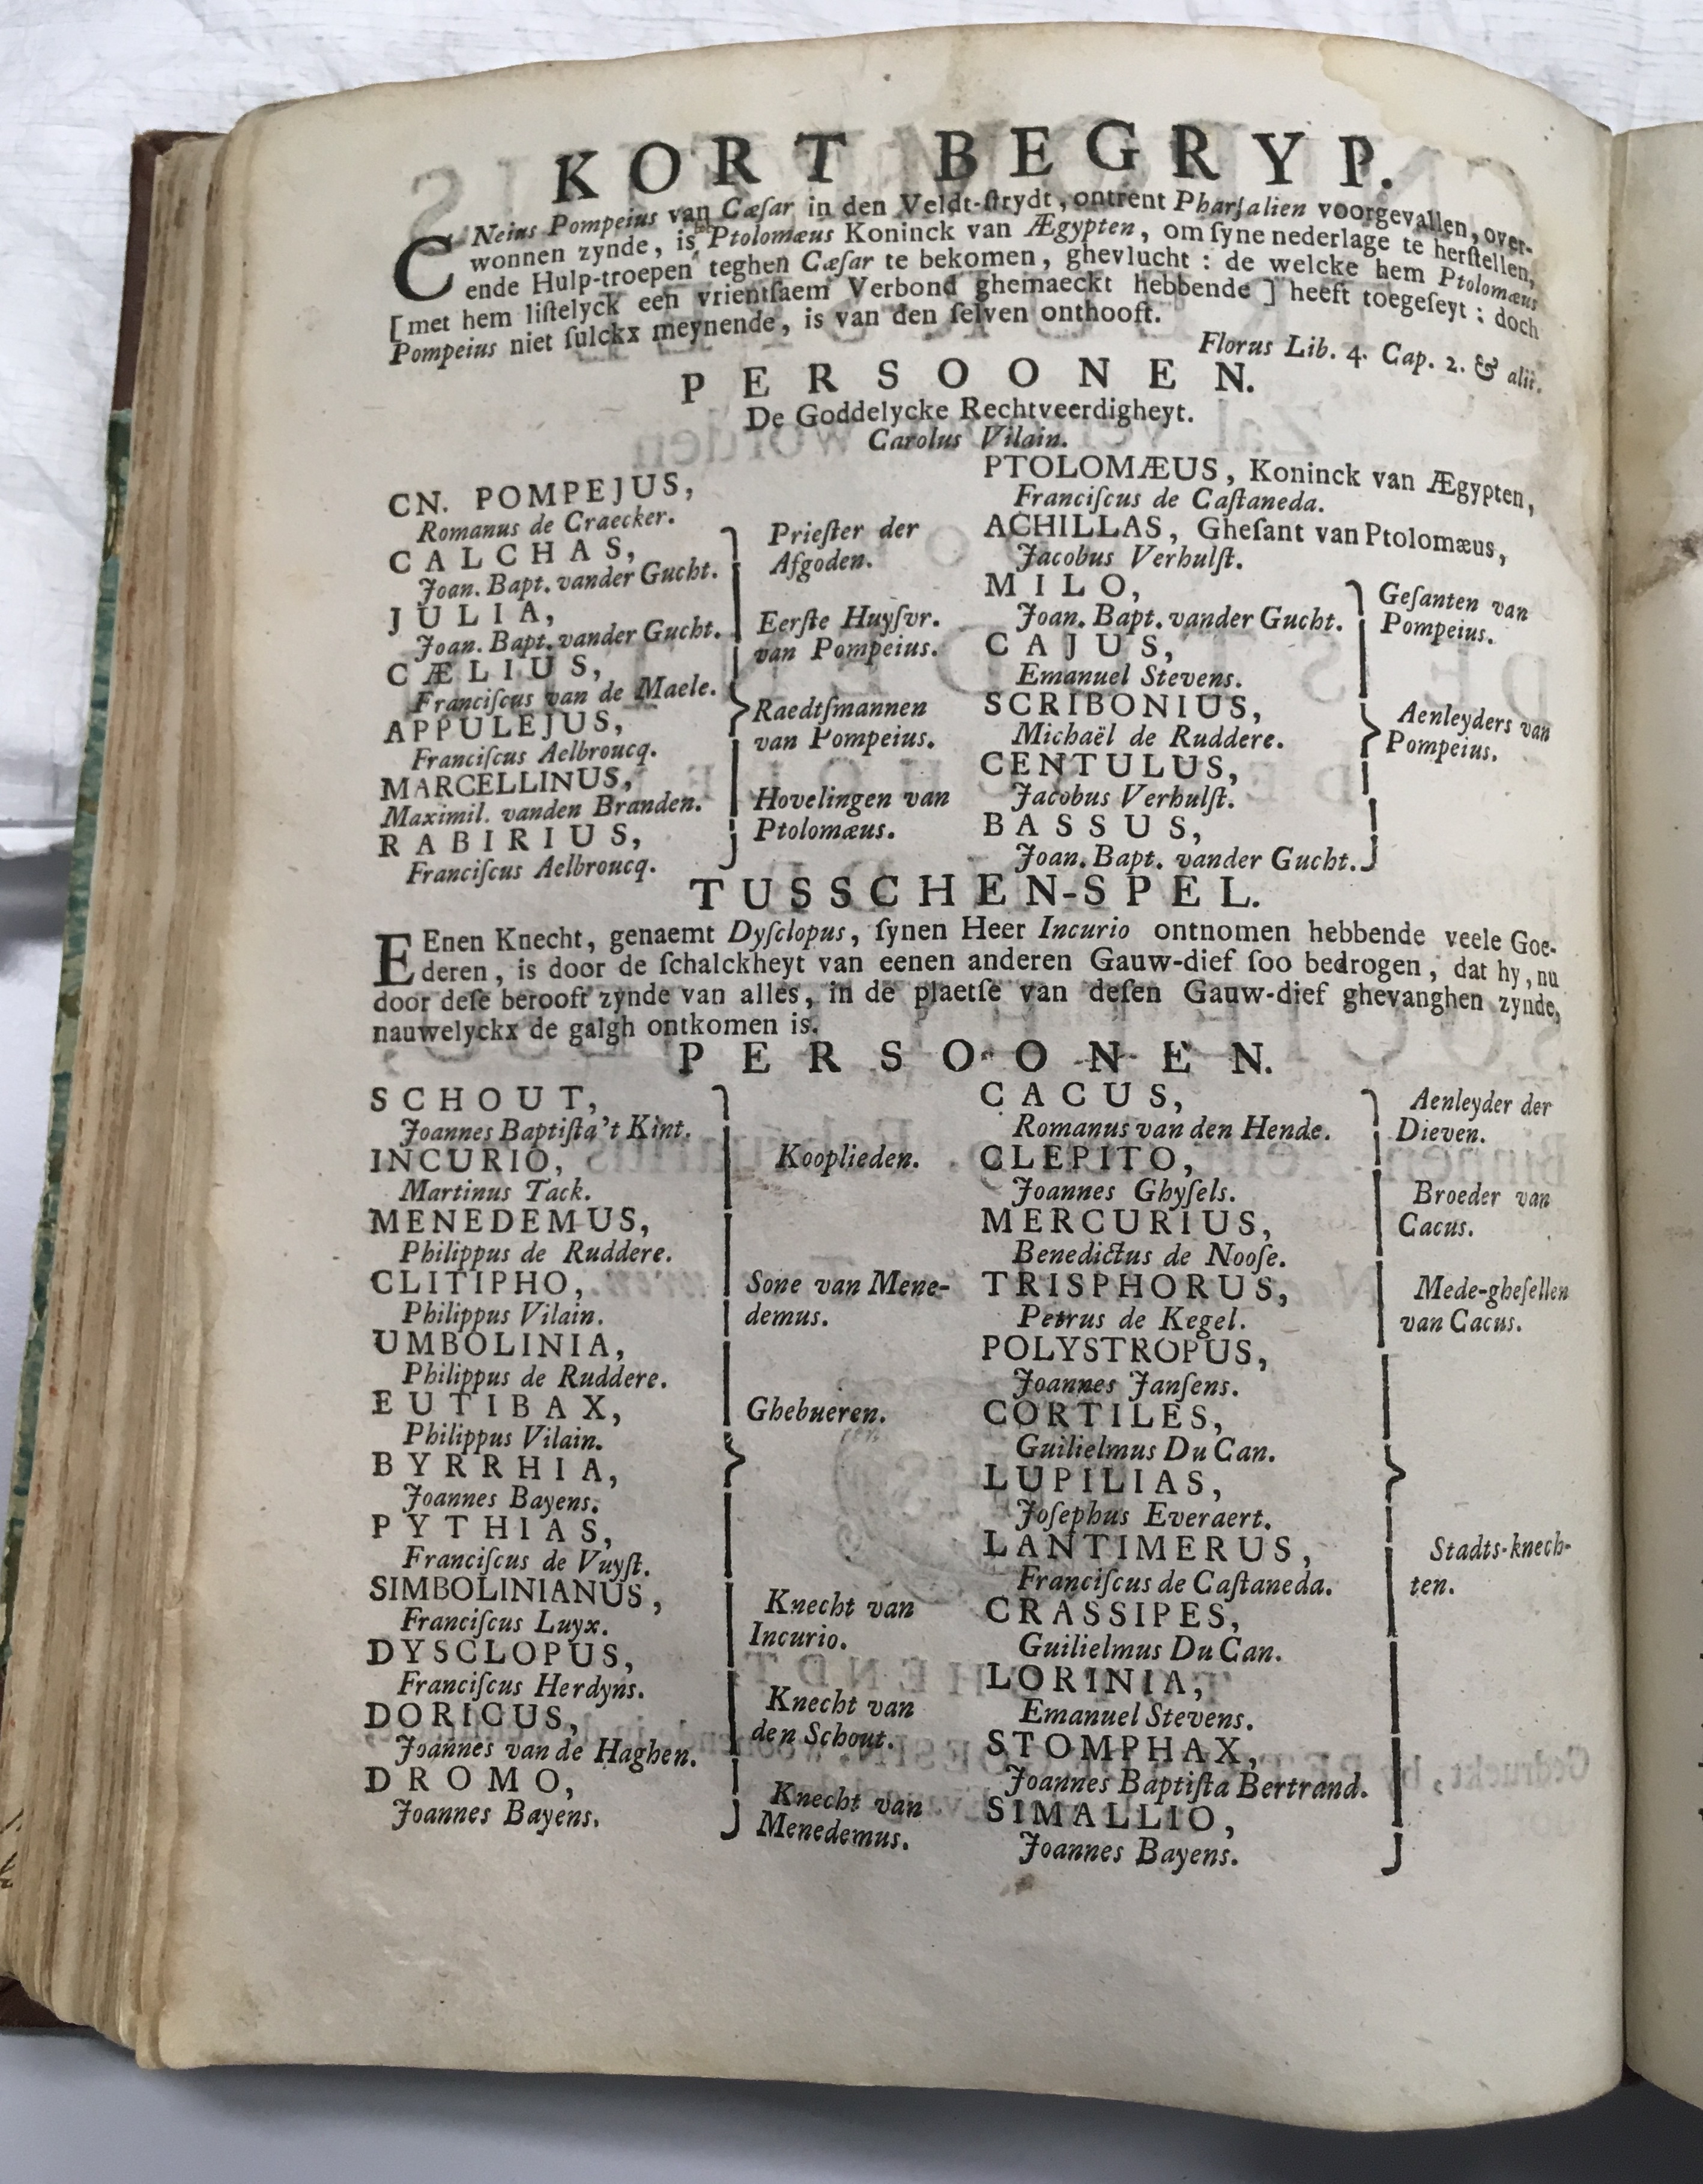 KORT BEGRYP.
CNeius Pompeius van Cæſar in den Veldt-ſtrydt, ontrent Pharſalien voorgevallen, over-
wonnen zynde, is tot Ptolomæus Koninck van Ægypten, om ſyne nederlage te herſtellen,
ende Hulp-troepen teghen Cæſar te bekomen, ghevlucht : de welcke hem Ptolomæus
[met hem liſtelyck een vrientſaem Verbond ghemaeckt hebbende] heeft toegeſeyt ; doch
Pompeius niet ſulckx meynende, is van den ſelven onthooft.
Florus Lib. 4. Cap. 2. & alii.
PERSOONEN.
De Goddelycke Rechtveerdigheyt.
Carolus Vilain.
CN. POMPEJUS,
Romanus de Craecker.
CALCHAS,
Joan. Bapt. vander Gucht.
JULIA,
Joan. Bapt. vander Gucht.
CÆLIUS,
Franciſcus van de Maele.
APPULEJUS,
Franciſcus Aelbroucq.
MARCELLINUS,
Maximil. vanden Branden.
RABIRIUS,
Franciſcus Aelbroucq.
Prieſter der
Afgoden.
Eerſte Huyſvr.
van Pompeius.
Raedtſmannen
van Pompeius.
Hovelingen van
Ptolomæus.
PTOLOMÆUS, Koninck van Ægypten,
Franciſcus de Caſtaneda.
ACHILLAS, Gheſant van Ptolomæus,
Jacobus Verhulſt.
MILO,
Joan. Bapt. vander Gucht.
CAJUS,
Emanuel Stevens.
SCRIBONIUS,
Michaël de Ruddere.
CENTULUS,
Jacobus Verhulſt.
BASSUS,
Joan. Bapt. vander Gucht.
Geſanten van
Pompeius.
Aenleyders van
Pompeius.
TUSSCHEN-SPEL.
EEnen Knecht, genaemt Dyſclopus, ſynen Heer Incurio ontnomen hebbende veele Goe-
deren, is door de ſchalckheyt van eenen anderen Gauw-dief ſoo bedrogen, dat hy, nu
door deſe berooft zynde van alles, in de plaetſe van deſen Gauw-dief ghevanghen zynde,
nauwelyckx de galgh ontkomen is.
PERSOONEN.
SCHOUT,
Joannes Baptiſta 't Kint.
INCURIO,
Martinus Tack.
MENEDEMUS,
Philippus de Ruddere.
CLITIPHO,
Philippus Vilain.
UMBOLINIA,
Philippus de Ruddere.
EUTIBAX,
Philippus Vilain.
BYRRHIA,
Joannes Bayens.
PYTHIAS,
Franciſcus de Vuyſt.
SIMBOLINIANUS,
Franciſcus Luyx.
DYSCLOPUS,
Franciſcus Herdyns.
DORICUS,
Joannes van de Haghen.
DROMO,
Joannes Bayens.
Kooplieden.
Sone van Mene-
demus.
Ghebueren.
Knecht van
Incurio.
Knecht van
den Schout.
Knecht van
Menedemus.
CACUS,
Romanus van den Hende.
CLEPITO,
Joannes Ghyſels.
MERCURIUS,
Benedictus de Nooſe.
TRISPHORUS,
Petrus de Kegel.
POLYSTROPUS,
Joannes Janſens.
CORTILES,
Guilielmus Du Can.
LUPILIAS,
Joſephus Everaert.
LANTIMERUS,
Franciſcus de Caſtaneda.
CRASSIPES,
Guilielmus Du Can.
LORINIA,
Emanuel Stevens.
STOMPHAX,
Joannes Baptiſta Bertrand.
SIMALLIO,
Joannes Bayens.
Aenleyder der
Dieven.
Broeder van
Cacus.
Mede-gheſellen
van Cacus.
Stadts-knech-
ten.